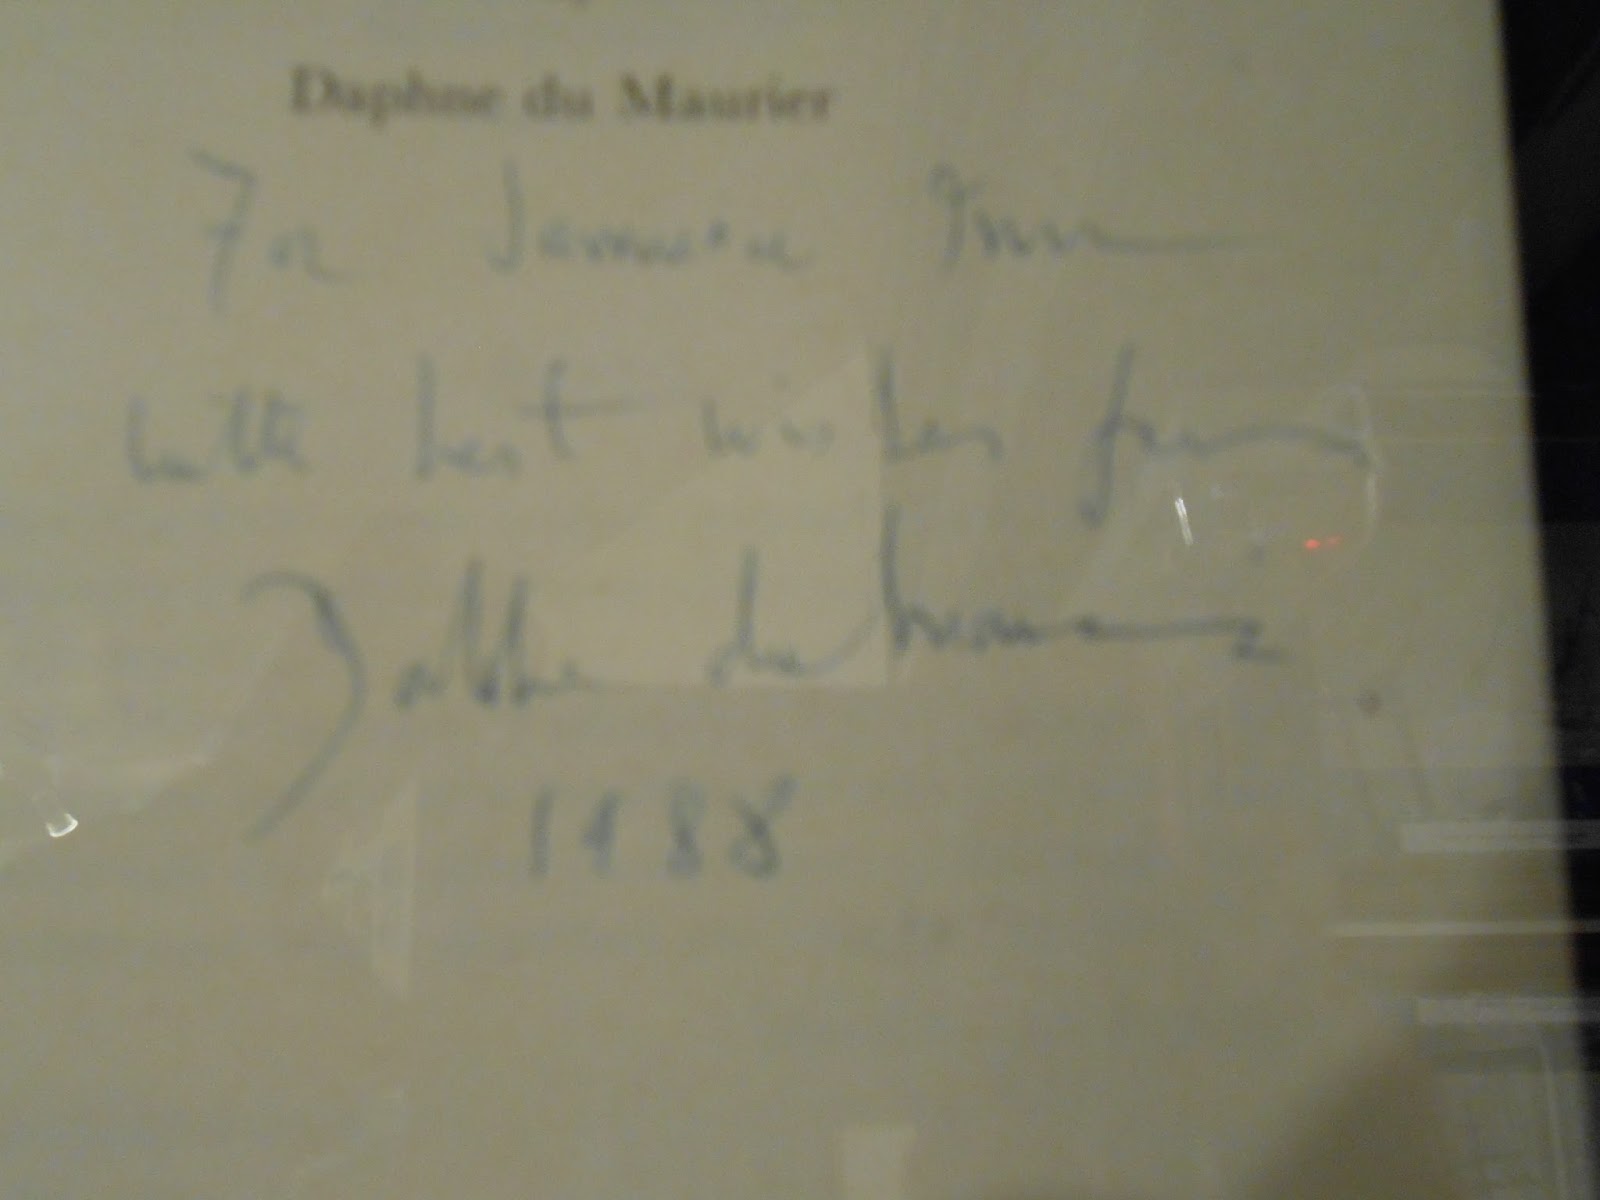 Daphne du Maurier
For Jamaica Inn
with best wishes from
Daphne du Maurier
1988